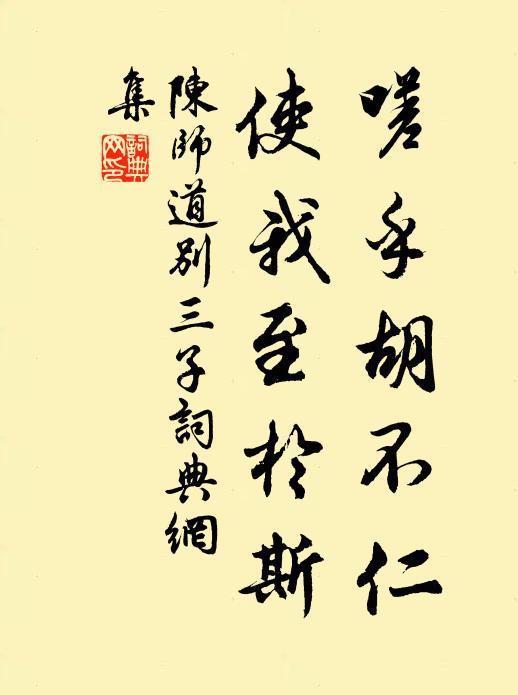 嗟乎胡不仁
使我至於斯
陳師道別三子詞典網
集
詞典
网印